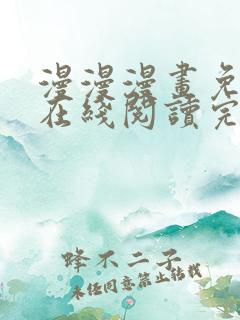 漫漫漫畫免
在綫閱讀完
蜂不二子
未經同意禁止轉載